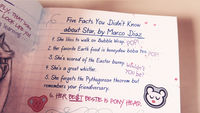 Five Facts You Didn't Know
about Star, by Marco Diaz
1. She likes to walk on Bubble Wrap. POP!
2. Her favorite Earth food is honeydew boba tea. POP!
3. She's scared of the Easter bunny.
4. She's a great whistler. YOU BET
5. She forgets the Pythagorean theorem but
remembers your friendiversary.
6. HER BEST BESTIE IS PONY HEAD.